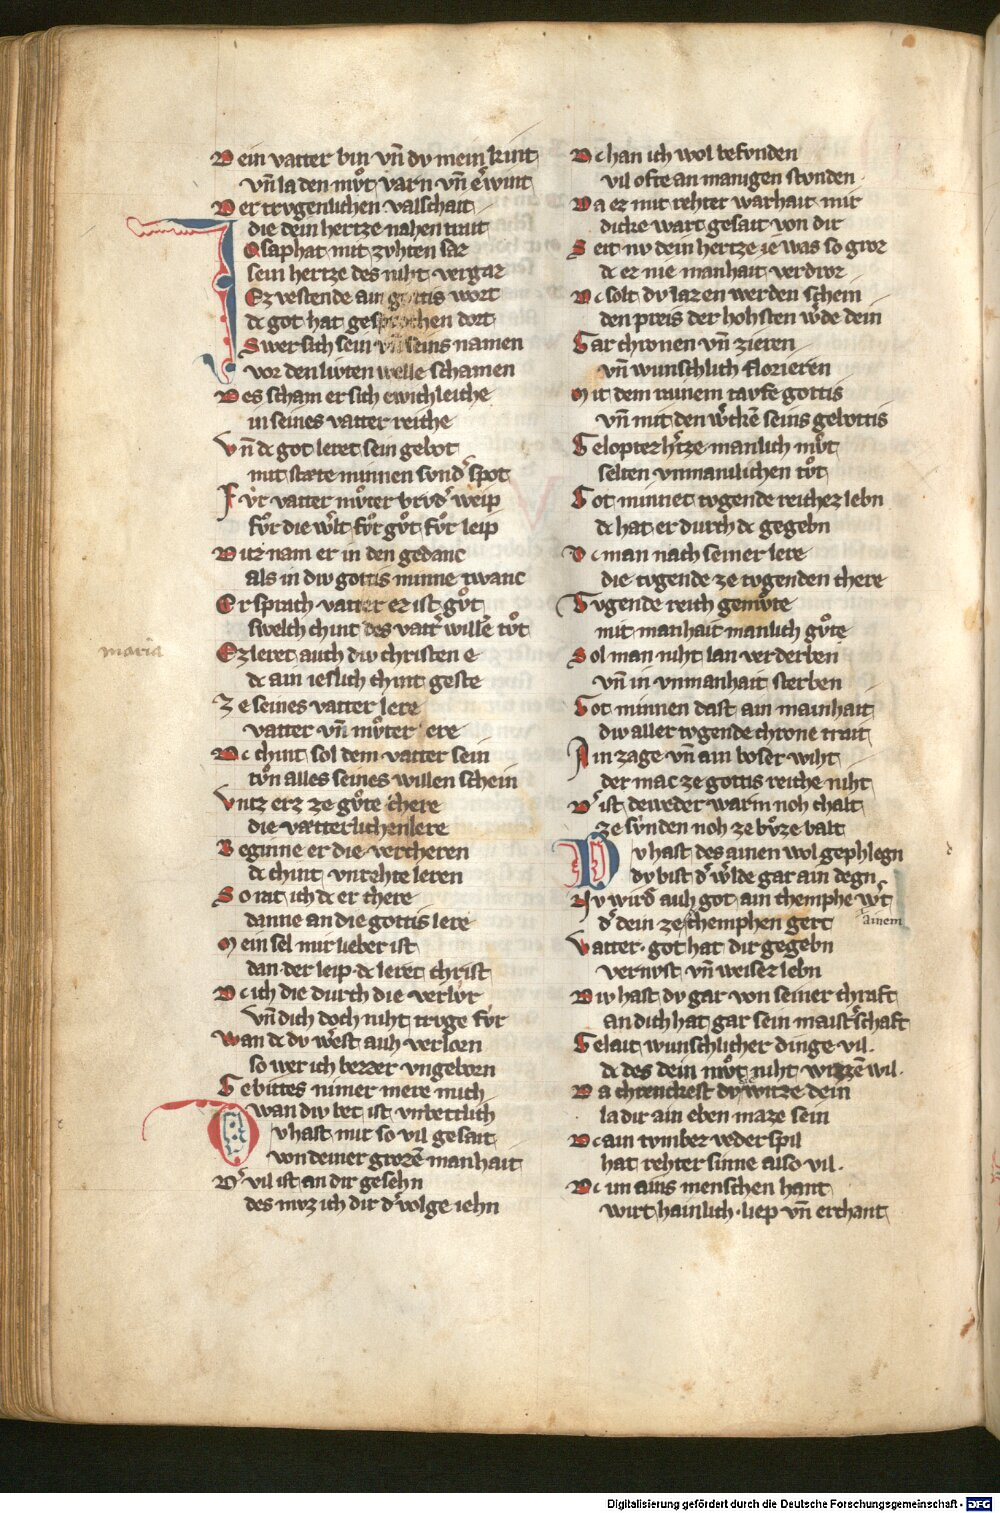 Dein vatter bin vn̄ dv mein kint
vn̄ la den mv̊t varn vn̄ erwint
Der trvgenlichen valschait
die dein hertze nahen trait
Josaphat mit zvhten sar
sein hertze des niht vergar
Ez vestende ain gottis wort
dc got hat gesprochen dort
Swer sich sein vn̄ seins namen
vor den livten welle schamen
Des scham er sich ewichleiche
in seines vatter reiche
Vn̄ dc got leret sein gebot
mit stæte minnen svnd͛ spot
Fv̊r vatter mv̊ter brvd͛ weip
fv̊r die w͛lt fv̊r gv̊t fv̊r leip
Ditz nam er in den gedanc
als in div gottis minne twanc
Er sprach vatter ez ist gv̊t
swelch chint des vatt͛ wille tv̊t
Ez leret auch div christen e
dc ain ieslich chint geste
Ze seines vatter lere
vatter vn̄ mv̊ter ere
Dc chint sol dem vatter sein
tv̊n alles seines willen schein
Vntz erz ze gv̊te chere
die vætterlichen lere
Beginne er die vercheren
dc chint vnrehte leren
So rat ich dc er chere
danne an die gottis lere
Mein sel mir lieber ist
dan der leip dc leret christ
Dc ich die dvrch die verlv̊r
vn̄ dich doch niht trvge fv̊r
Wan dc dv west auh verlorn
so wer ich bezzer vngeborn
Gebittes nimer mere mich
wan div bet ist vnbetlich
Dv hast mir so vil gesait
von deiner grozen manhait
D͛ vil ist an dir gesehn
des mvz ich dir d͛ volge iehn
maria
Dc han ich wol befvnden
vil ofte an manigen stvnden
Da ez mit rehter warhait mir
dicke wart gesait von dir
Seit nv dein hertze ie was so groz
dc er nie manhait verdroz
Dc solt dv lazen werden schein
den preis der hohsten w͛de dein
Gar chronen vn̄ zieren
vn̄ wunschlich florieren
Mit dem rainem taufe gottis
vn̄ mit den w͛cken seins gebottis
Gelopter h͛tze manlich mv̊t
selten vnmanlichen tv̊t
Got minnet tvgende reichez lebn
dc hat er durch dc gegebn
Dc man nach seiner lere
die tvgende ze tvgenden chere
Tvgende reich gemv̊te
mit manhait manlich gv̊te
Sol man niht lan verderben
vn̄ in vnmanhait sterben
Got minnen dast ain mainhait
div aller tvgende chrone trait
Ain zage vn̄ ain boser wiht
der mac ze gottis reiche niht
D͛ ist deweder warm noh chalt
ze sv̊nden noh ze bv̊ze balt
Dv hast des ainen wol gephlegn
dv bist d͛ w͛lde gar ain degn
Nv wird͛ auh got ain chemphe w͛t
d͛ dein ze chemphen gert
ainem
Vatter got hat dir gegebn
vernvst vn̄ weisez lebn
Div hast dv gar von seiner chraft
an dich hat gar sein maist͛schaft
Gelait wunschlicher dinge vil.
dc des dein mv̊t niht wizzen wil.
Da chrenckest dv witze dein
la dir ain eben maze sein
Dc ain tvmbez vederspil
hat rehter sinne also vil.
Dc im ains menschen hant
wirt hainlich liep vn̄ erchant
Digitalisierung gefördert durch die Deutsche Forschungsgemeinschaft - DFG